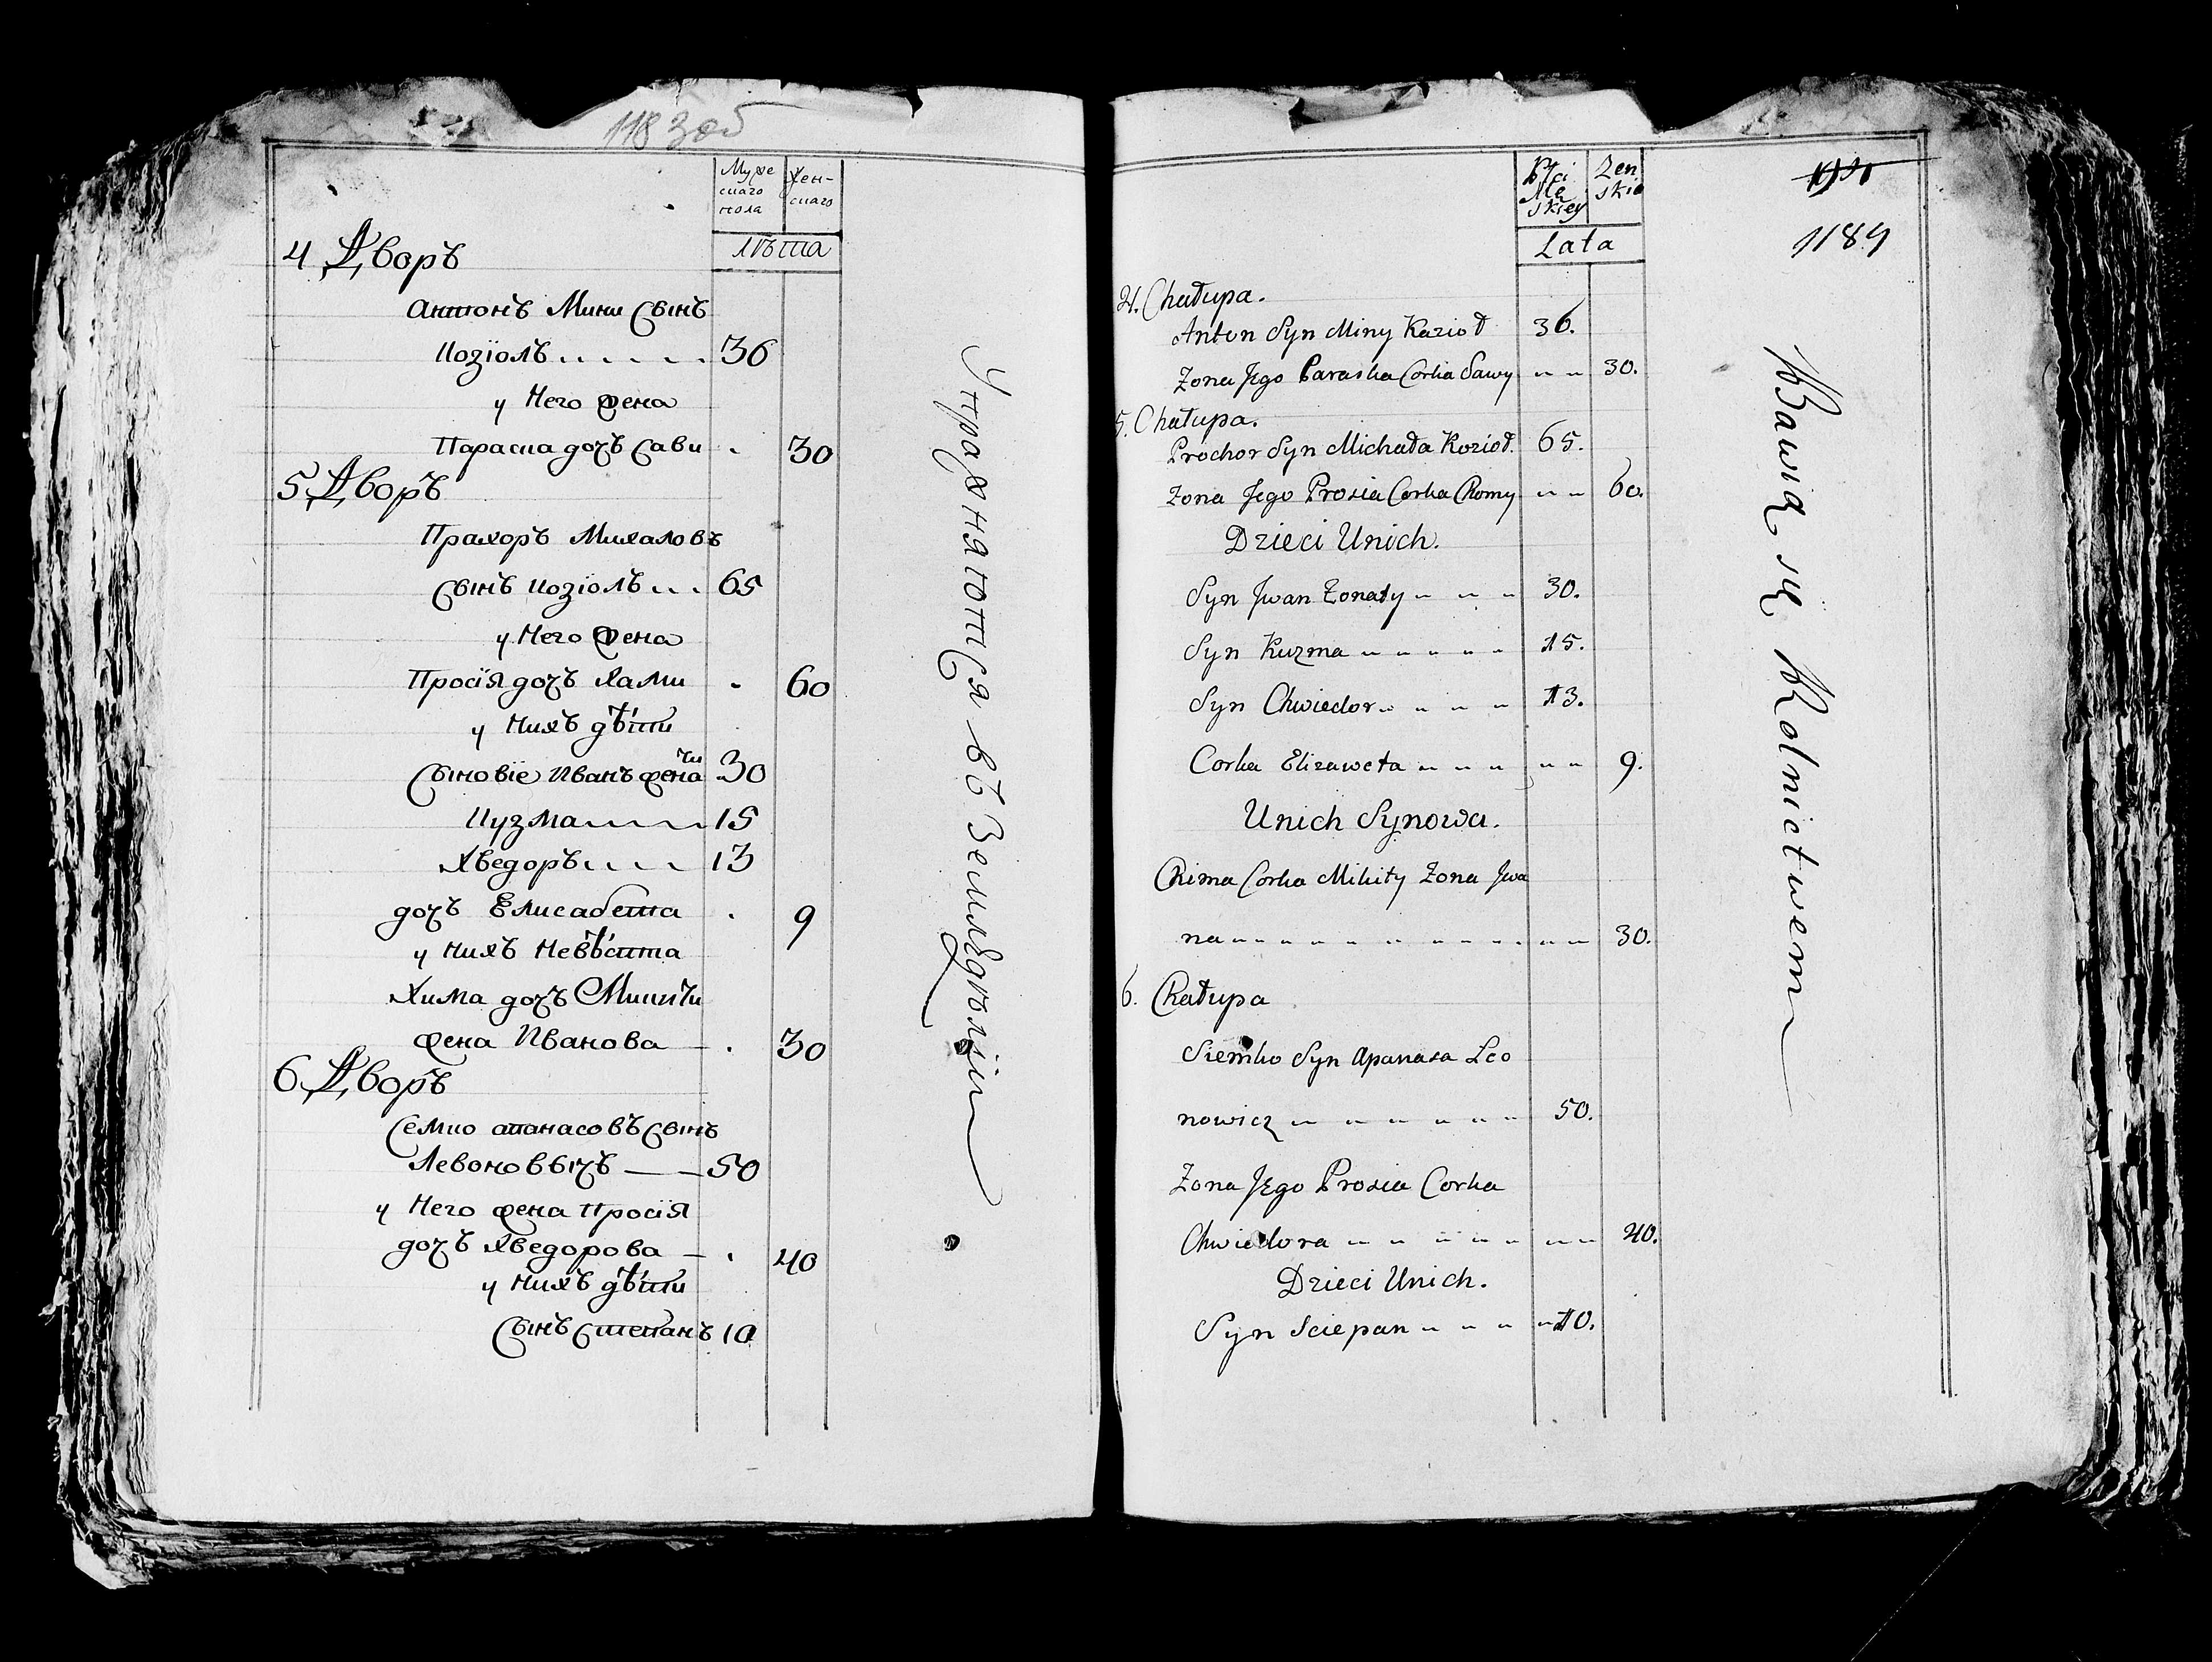 118 3об
Муже
скаго
пола
Жен-
скаго
лѣта
4 Дворъ
Антонъ Мини Сынъ
Козіолъ 36
у Него жена
Параска дочъ Сави 30
5 Дворъ
Прахоръ Михаловъ
Сынъ Козіолъ 65
у Него жена
Просія дочъ Хами 60
у Нихъ дѣти
Сыновіе Иванъ жена
ти 30
Кузма 15
Хведоръ 13
дочъ Елисавета 9
у Нихъ Невѣстка
Хима дочъ Микити
жена Иванова 30
6 Дворъ
Семко апанасовъ Сынъ
Левоновычъ 50
у Него жена Просія
дочъ Хведорова 40
у Нихъ дѣти
Сынъ Степанъ 10
Упражняются въ Земледѣліи
Płci
Mę
skiey
Zen
skie
Lata
1189
4. Chałupa.
Anton Syn Miny Kazioł 36.
Zona Jego Paraska Corka Sawy 30.
5. Chałupa.
Prochor Syn Michała Kozioł. 65.
Zona Jego Prosia Corka Chomy 60.
Dzieci Unich.
Syn Jwan Zonaty 30.
Syn Kuzma 15.
Syn Chwiedor 13.
Corka Elizaweta 9.
Unich Synowa.
Chima Corka Mikity Zona Jwa
na 30.
6. Chałupa
Siemko Syn Apanasa Leo
nowicz 50.
Zona Jego Prosia Corka
Chwiedora 40.
Dzieci Unich.
Syn Sciepan 10.
Bawią się Rolnictwem